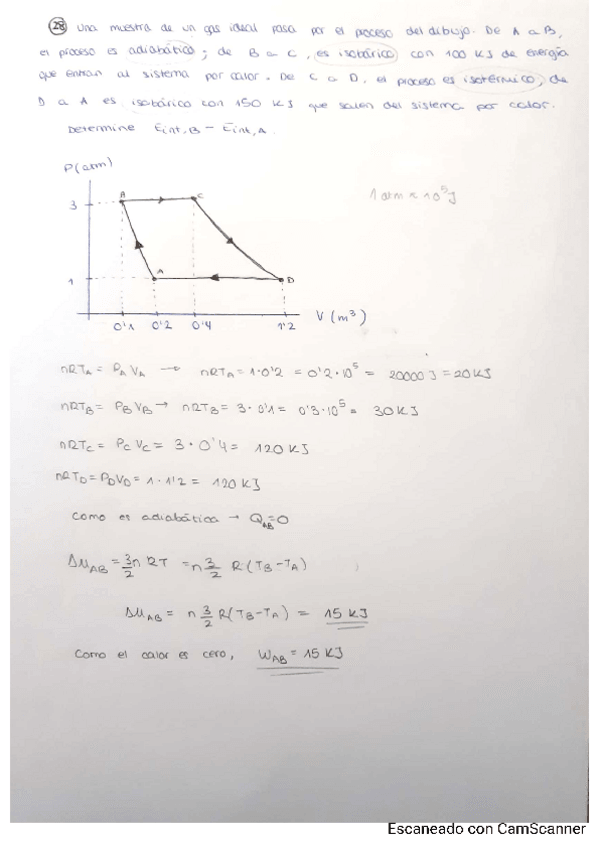 28 Una muestra de un gas ideal pasa por el proceso del dibujo. De A a B,
el proceso es adiabático; de B a C, es isobárico con 100 KJ de energía
que entran al sistema por calor. De C a D, el proceso es isotérmico; de
D a A es isobárico con 150 KJ que salen del sistema por calor.
Determine Eint,B - Eint,A.
P(atm)
1 atm ≈ 10⁵J
3
A
C
1
A
D
0'1 0'2 0'4 1'2 V (m³)
nRTA = PA VA → nRTA = 1·0'2 = 0'2·10⁵ = 20000 J = 20 KJ
nRTB = PB VB → nRTB = 3·0'1 = 0'3·10⁵ = 30 KJ
nRTC = PC VC = 3·0'4 = 120 KJ
nRTD = PDVD = 1·1'2 = 120 KJ
Como es adiabática → QAB=0
ΔUAB = 3/2 n RT = n 3/2 R(TB-TA)
ΔUAB = n 3/2 R(TB-TA) = 15 KJ
Como el calor es cero, WAB = 15 KJ
Escaneado con CamScanner